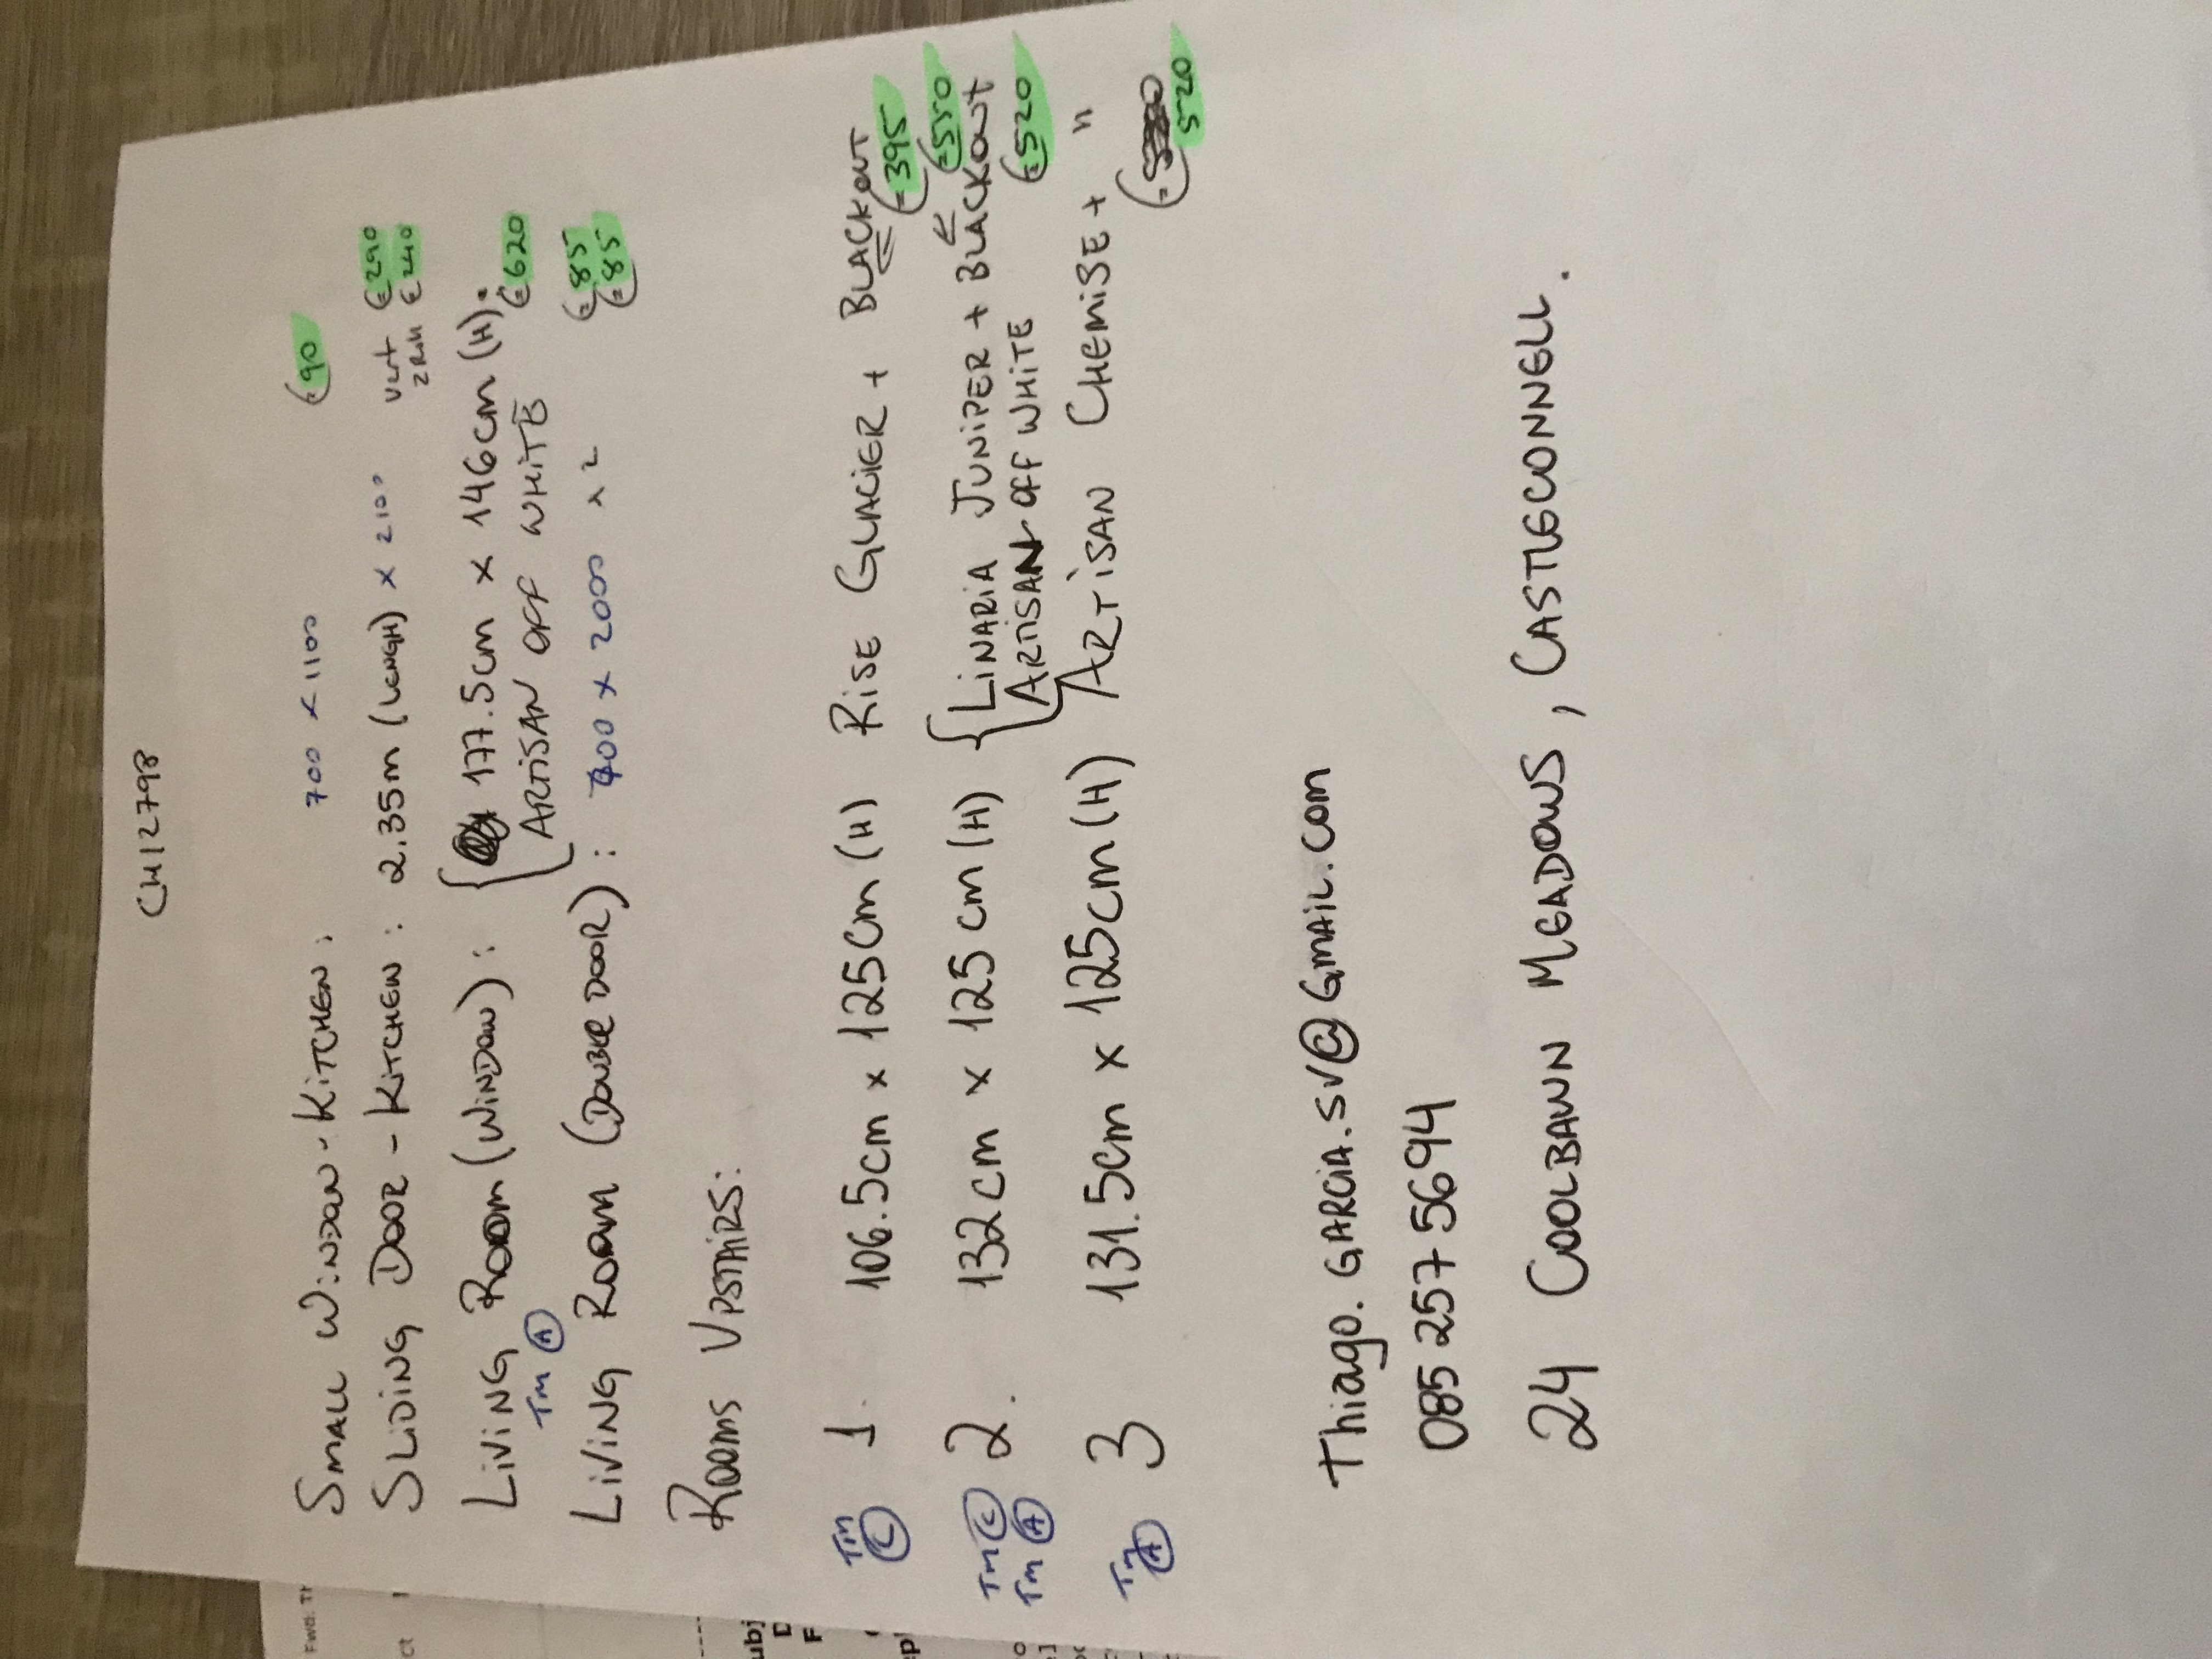 CH12798
SMALL WINDOW - KITCHEN: 700 x 1100 €90
SLIDING DOOR - KITCHEN: 2.35m (LENGH) x 2100 Vert €290
2 Roll €240
LIVING ROOM (WINDOW): { 177.5cm x 146cm (H).
TM (A) ARTISAN OFF WHITE €620
LIVING ROOM (DOUBLE DOOR): 400 x 2000 x 2 €85
€85
ROOMS UPSTAIRS:
TM (C) 1. 106.5cm x 125cm (H) RISE GLACIER + BLACKOUT
€395
TM (C) 2. 132cm x 125cm (H) { LINARIA JUNIPER + BLACKOUT €550
TM (A) ARTISAN OFF WHITE €520
TM (A) 3 131.5cm x 125cm (H) ARTISAN CHEMISE + "
€ 520
Thiago.GARCIA.SV@GMAIL.COM
085 257 5694
24 COOLBAWN MEADOWS, CASTLECONNELL.
FWD: TH
ct
ubj
D
F